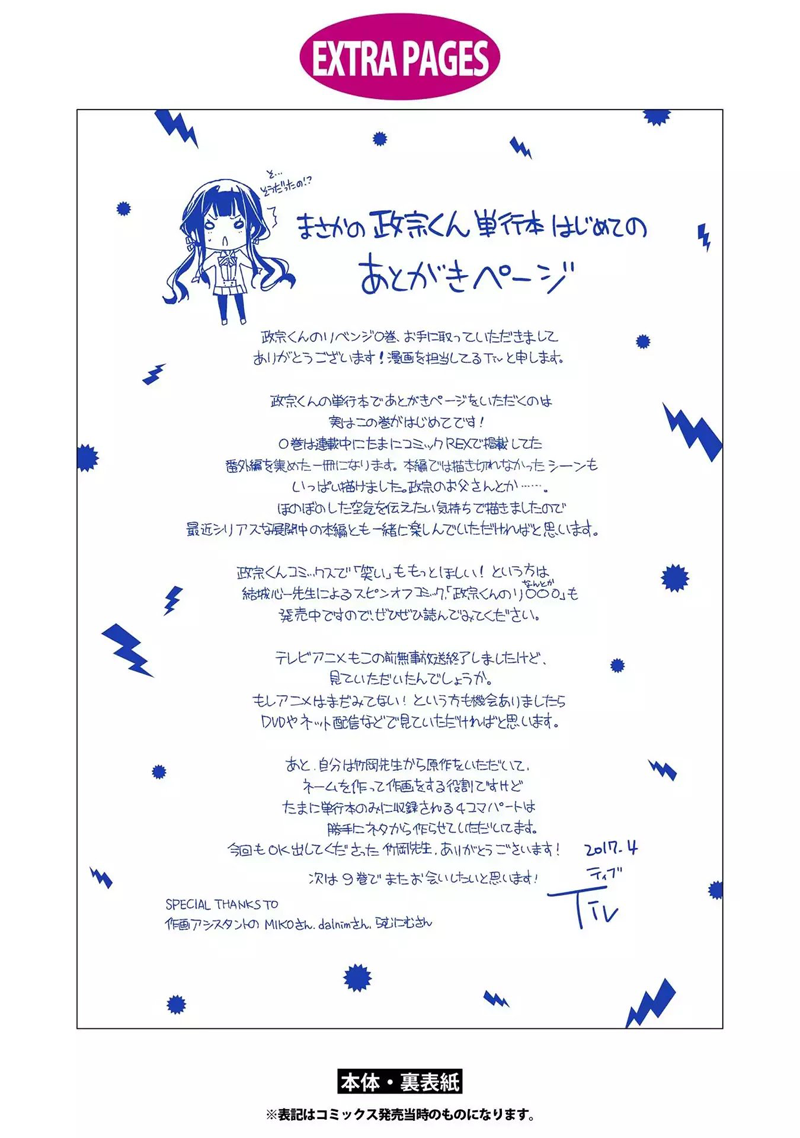 EXTRA PAGES
え…
そうだったの!?
まさかの政宗くん単行本はじめての
あとがきページ
政宗くんのリベンジ0巻、お手に取っていただきまして
ありがとうございます!漫画を担当してるTivと申します。
政宗くんの単行本であとがきページをいただくのは
実はこの巻がはじめてです!
0巻は連載中にたまにコミックREXで掲載してた
番外編を集めた一冊になります。本編では描き切れなかったシーンも
いっぱい描けました。政宗のお父さんとか……。
ほのぼのした空気を伝えたい気持ちで描きましたので
最近シリアスな展開中の本編とも一緒に楽しんでいただければと思います。
政宗くんコミックスで「笑い」ももっとほしい!という方は
なんとか
結城心一先生によるスピンオフコミック、「政宗くんのリ○○○」も
発売中ですので、ぜひぜひ読んでみてください。
テレビアニメもこの前無事放送終了しましたけど、
見ていただいたんでしょうか。
もしアニメはまだみてない!という方も機会ありましたら
DVDやネット配信などで見ていただければと思います。
あと、自分は竹岡先生から原作をいただいて、
ネームを作って作画をする役割ですけど
たまに単行本のみに収録される4コマパートは
勝手にネタから作らせていただいてます。
今回もOK出してくださった竹岡先生、ありがとうございます!
次は9巻でまたお会いしたいと思います!
2017.4
ティブ
Tiv
SPECIAL THANKS TO
作画アシスタントの MIKOさん、dalnimさん、らむにむさん
本体・裏表紙
※表記はコミックス発売当時のものになります。